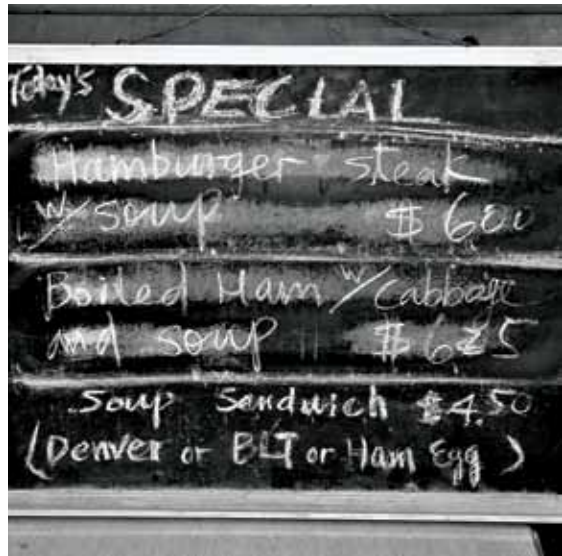 Today's SPECIAL
Hamburger steak
w/ soup $ 600
Boiled Ham w/ cabbage
and soup $ 625
Soup Sandwich $4.50
(Denver or BLT or Ham Egg)